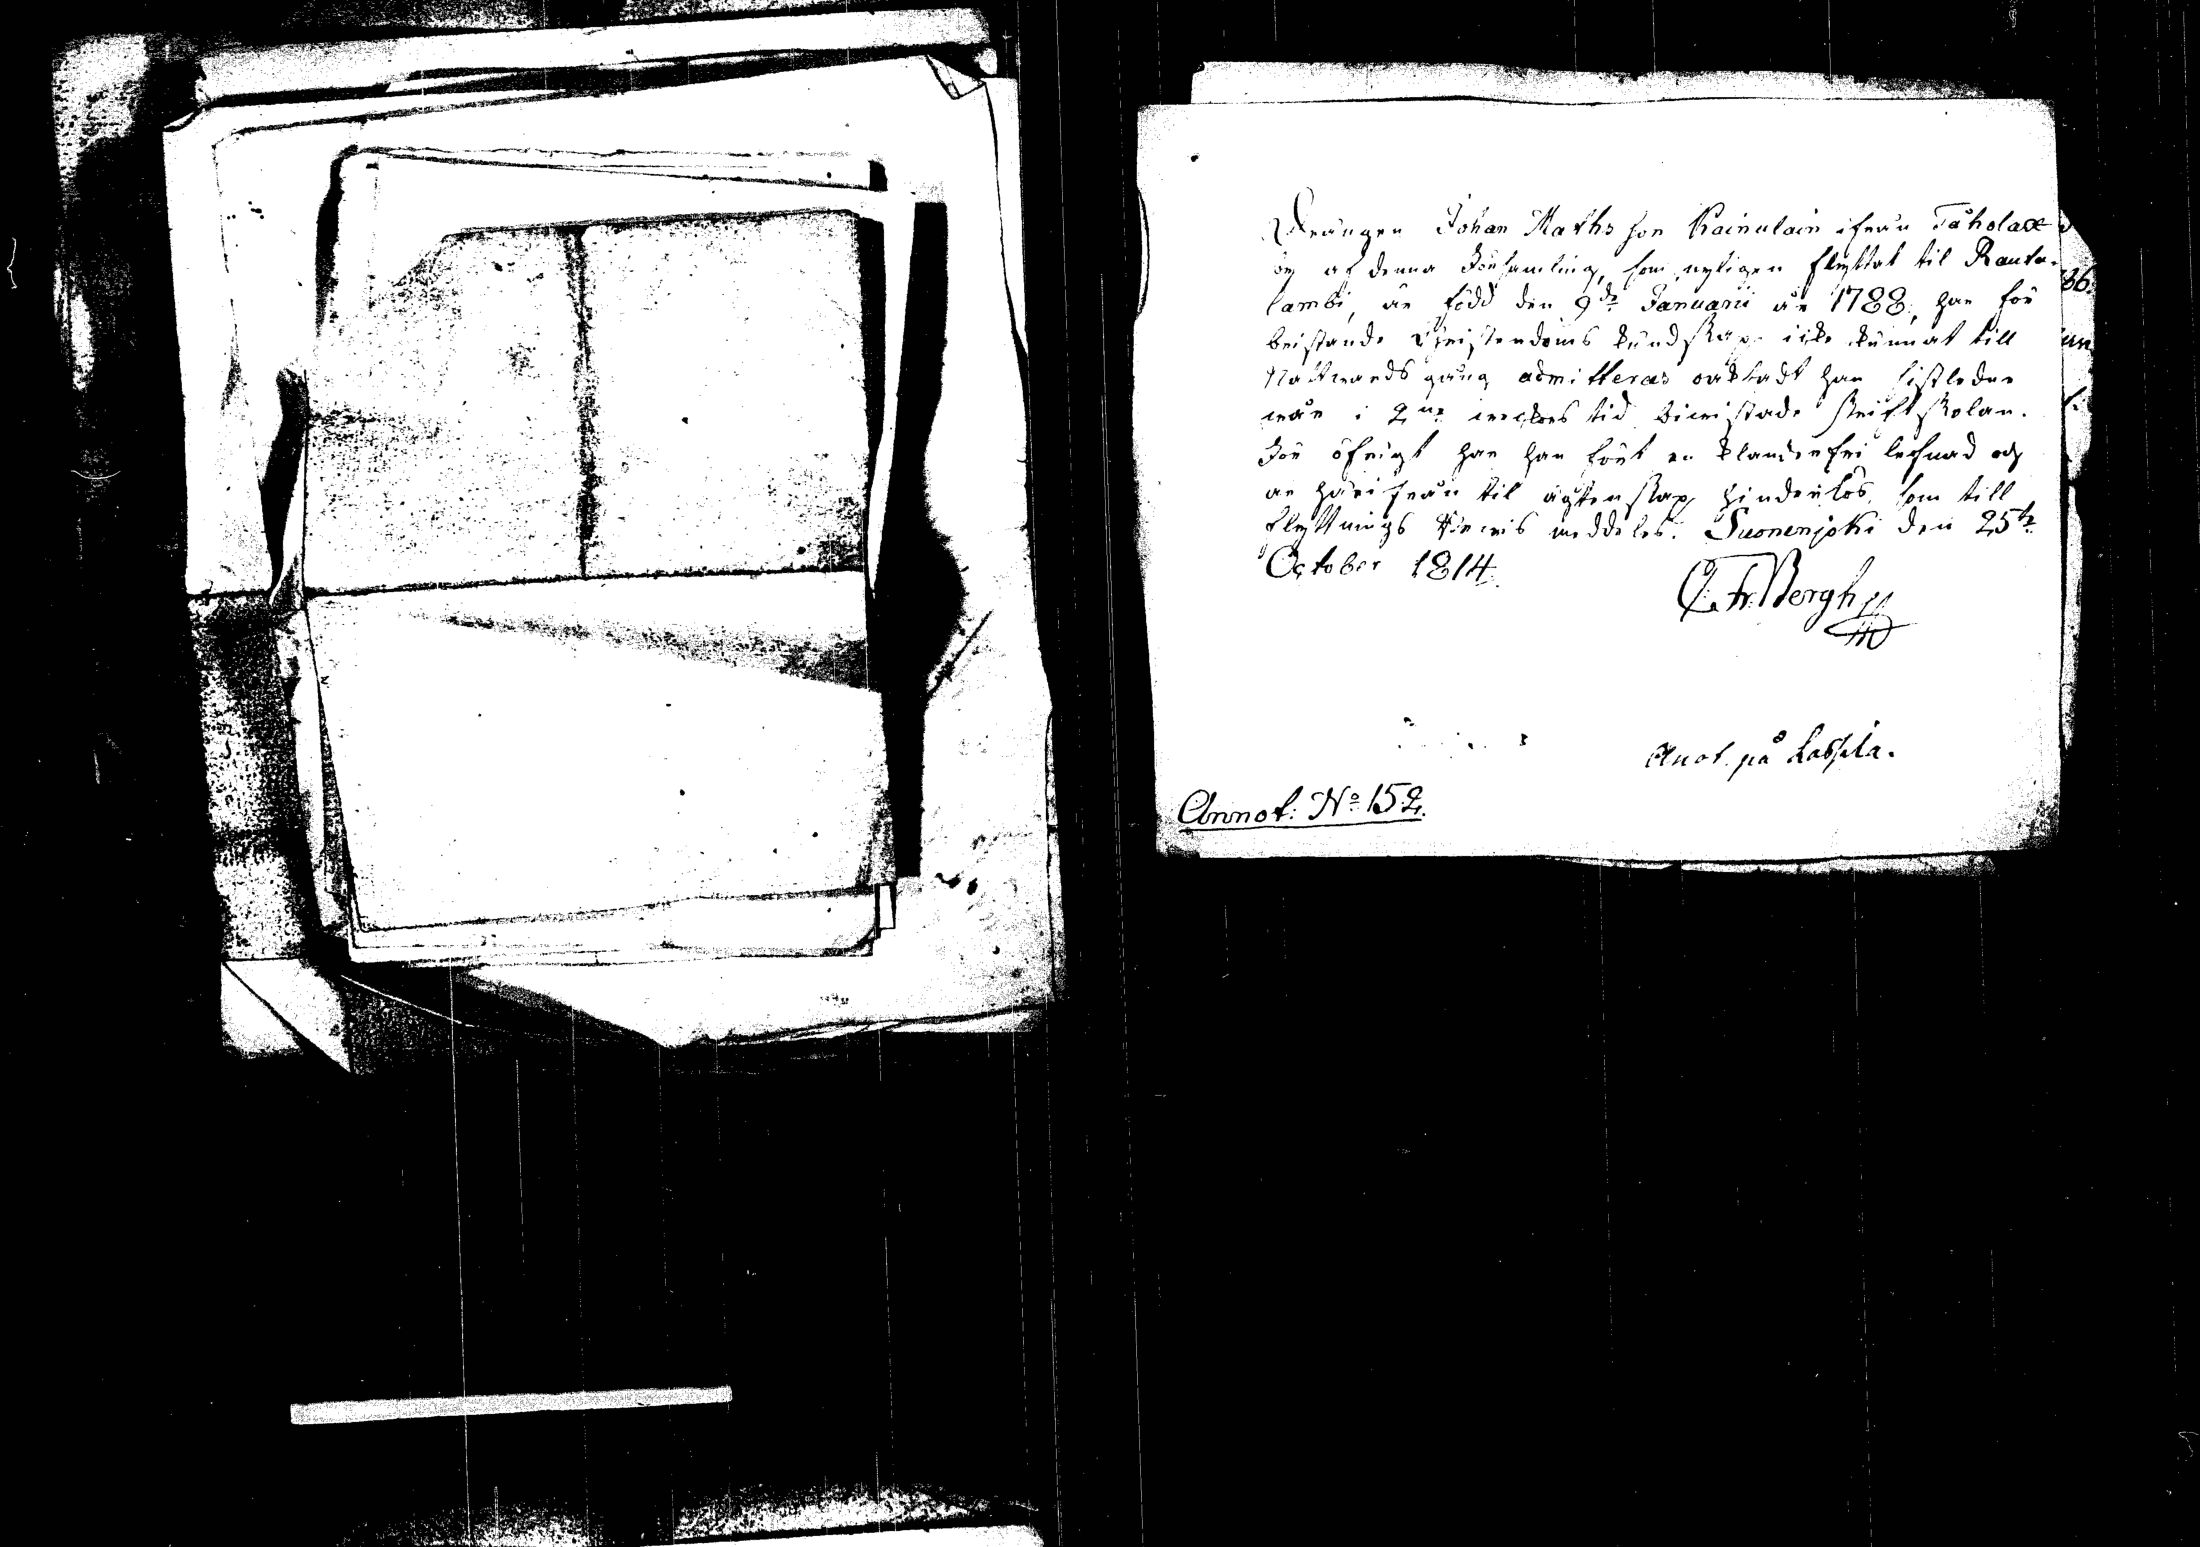 Drängen Johan Mathsson Kainulain ifrån Tåholax
by af denna Församling, som nyligen flyttat til Rauta-
lambi, är född den 9de Januarii år 1788, har för
bristande Christendoms kundskap icke kunnat till
Nattwards gång admitteras oaktadt han sistledne
wår i 2ne weckors tid biwistade skriftskolan.
För öfrigt har han fört en klanderfri lefnad och
är härifrån til ägtenskap hinderlös, som till
flyttnings bewis meddeles. Suonenjoki den 25te
October 1814.
Fr. Bergh
Anot. på
Annot: No 152.